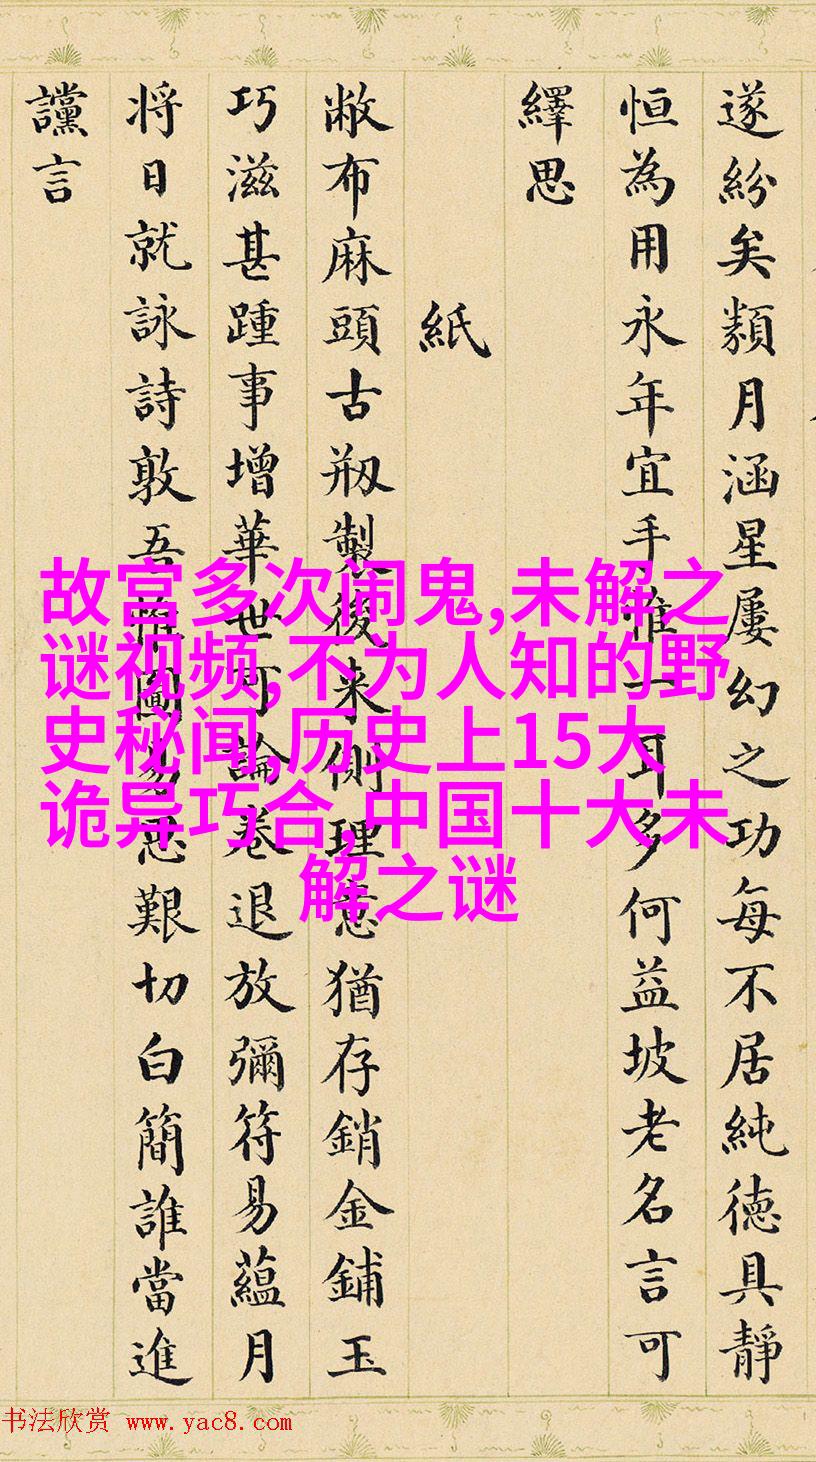 遂紛矣類月涵星屢幻之功每不居純德具靜
恒為用永年宜手惟一耳多何益坡老名言可
繹思
紙
敝布麻頭古剏製後来側理意猶存銷金鋪玉
巧滋甚踵事增華世可論卷退放彌符易蘊月
将日就詠詩敦吾惟圖易思艱切白簡誰當進
讜言
故宫多次闹鬼,未解之
谜视频,不为人知的野
史秘闻,历史上15大
诡异巧合,中国十大未
解之谜
书法欣赏 www.yac8.com